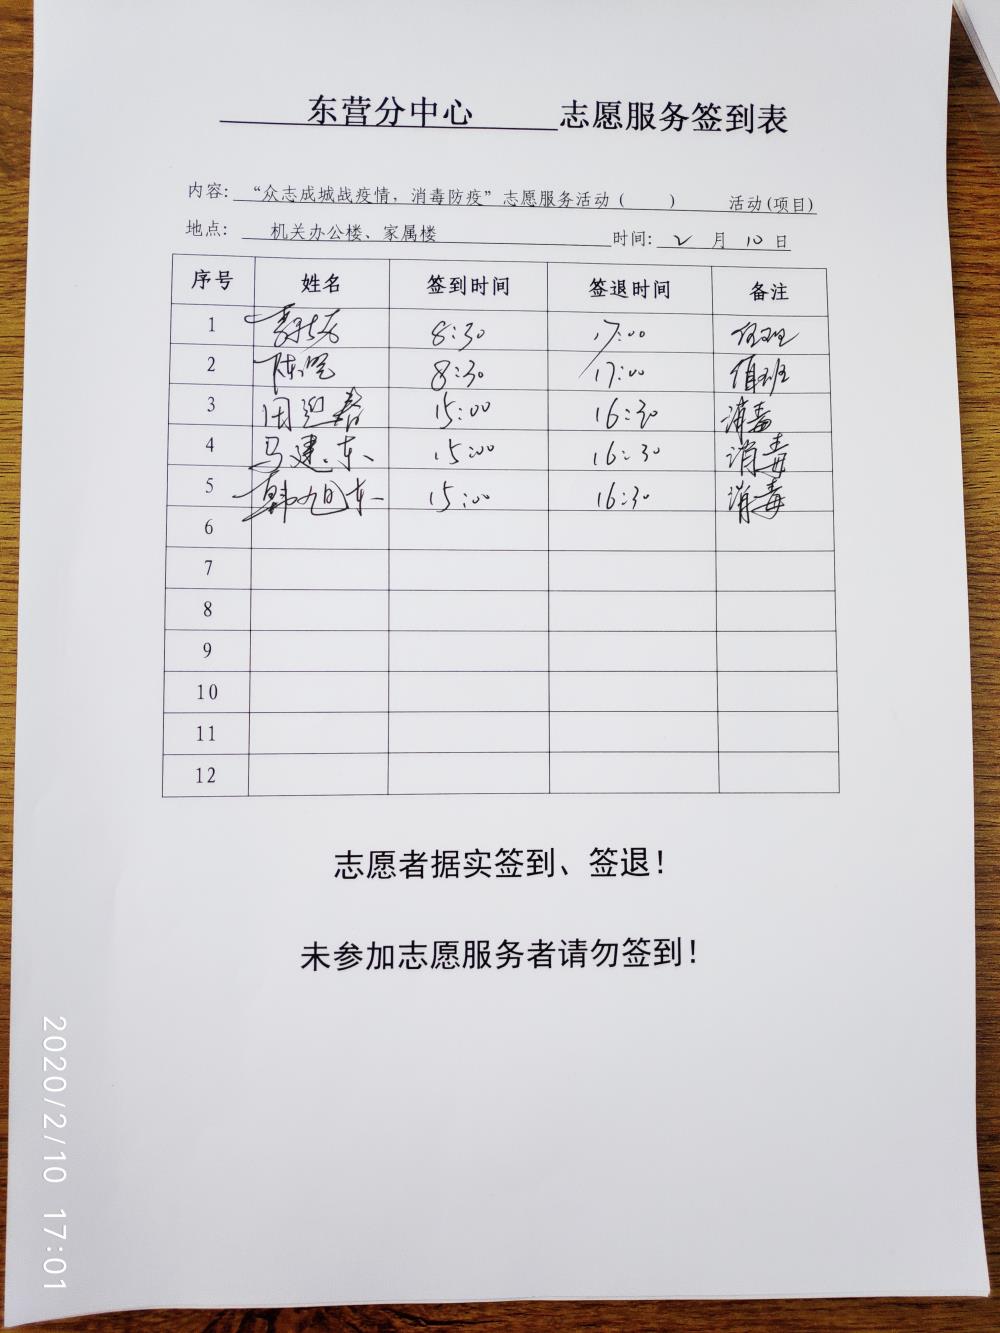 东营分中心 志愿服务签到表
内容: “众志成城战疫情，消毒防疫”志愿服务活动（ ） 活动(项目)
地点: 机关办公楼、家属楼 时间: 2 月 10 日
序号 姓名 签到时间 签退时间 备注
1 8:30 17:00 值班
2 8:30 17:00 值班
3 闫迎春 15:00 16:30 消毒
4 马建东 15:00 16:30 消毒
5 韩旭东 15:00 16:30 消毒
6
7
8
9
10
11
12
志愿者据实签到、签退！
未参加志愿服务者请勿签到！
2020/2/10 17:01